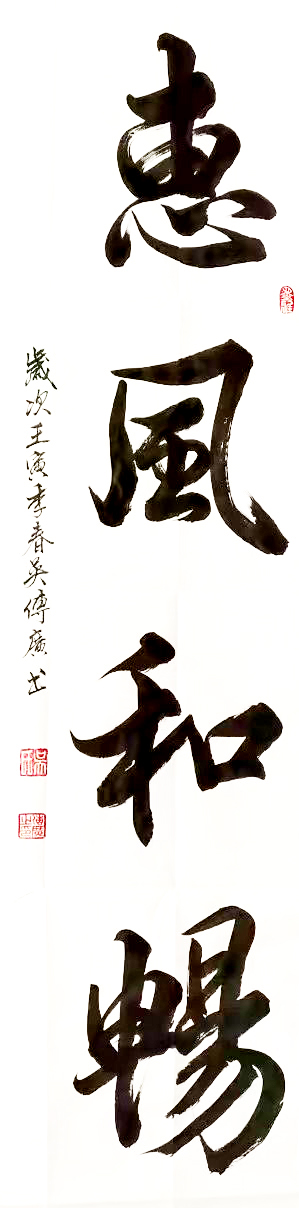 惠風和暢
歲次壬寅季春吳傳廣书